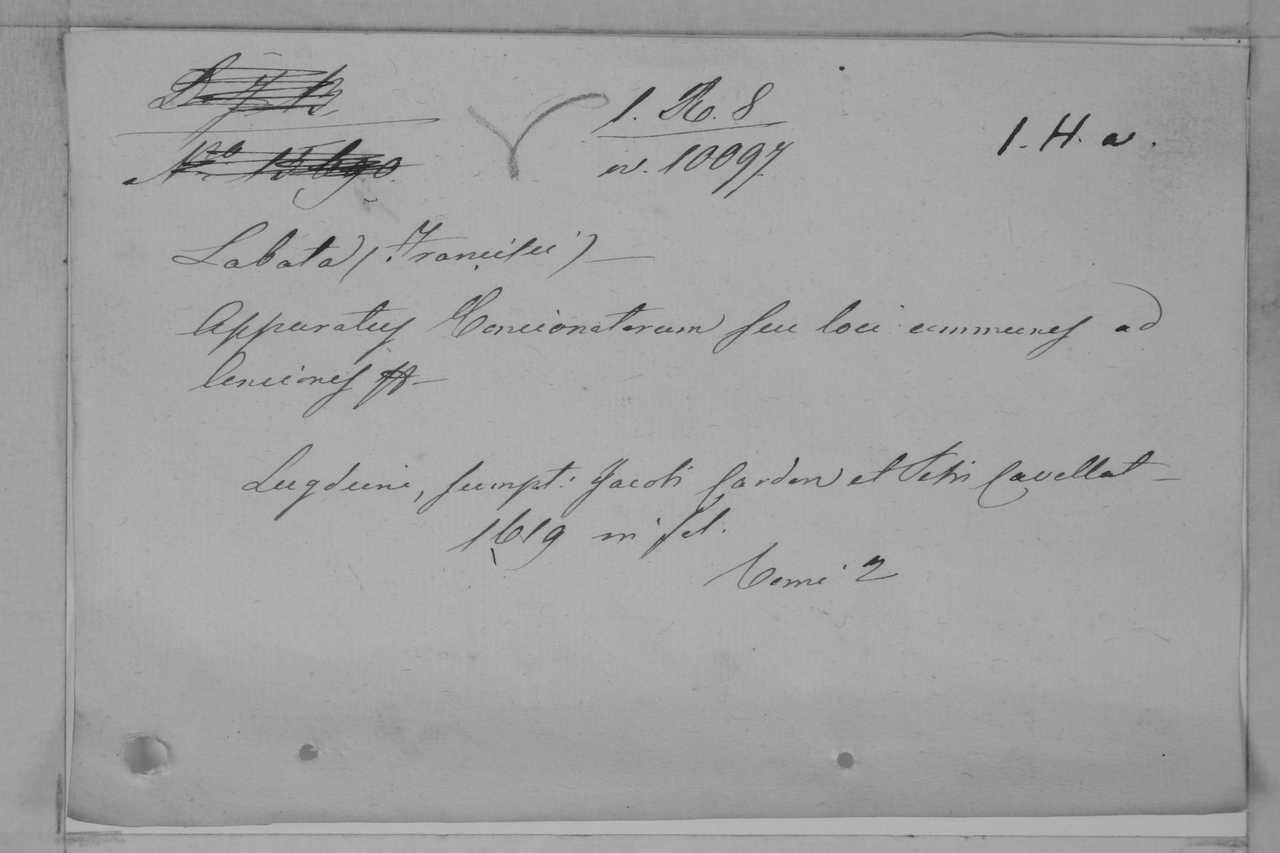 1. R. 8
1. H. a.
N. 10097.
Labata (Francisci) —
Apparatus Concionatorum seu loci communes ad
Conciones
Lugduni, sumpt: Jacobi Cardon et Petri Cavellat —
1619 in fol.
Tomi 2